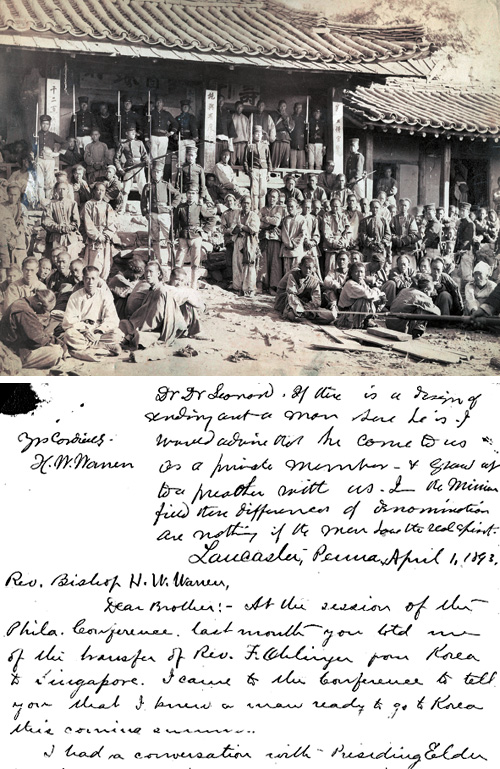 十二
Dr Dr Leonard. If there is a design of
sending out a man here he is. I
would advise that he come to us
as a private member - & grow up
to a preacher with us. In the Mission
field these differences of denomination
are nothing if the man have the real spirit.
Yrs Cordially.
H. W. Warren
Lancaster, Penna, April 1, 1893.
Rev. Bishop H. W. Warren,
Dear Brother:- At the session of the
Phila. Conference last month you told me
of the transfer of Rev. F. Ohlinger from Korea
to Singapore. I came to the Conference to tell
you that I knew a man ready to go to Korea
this coming summer.
I had a conversation with Presiding Elder